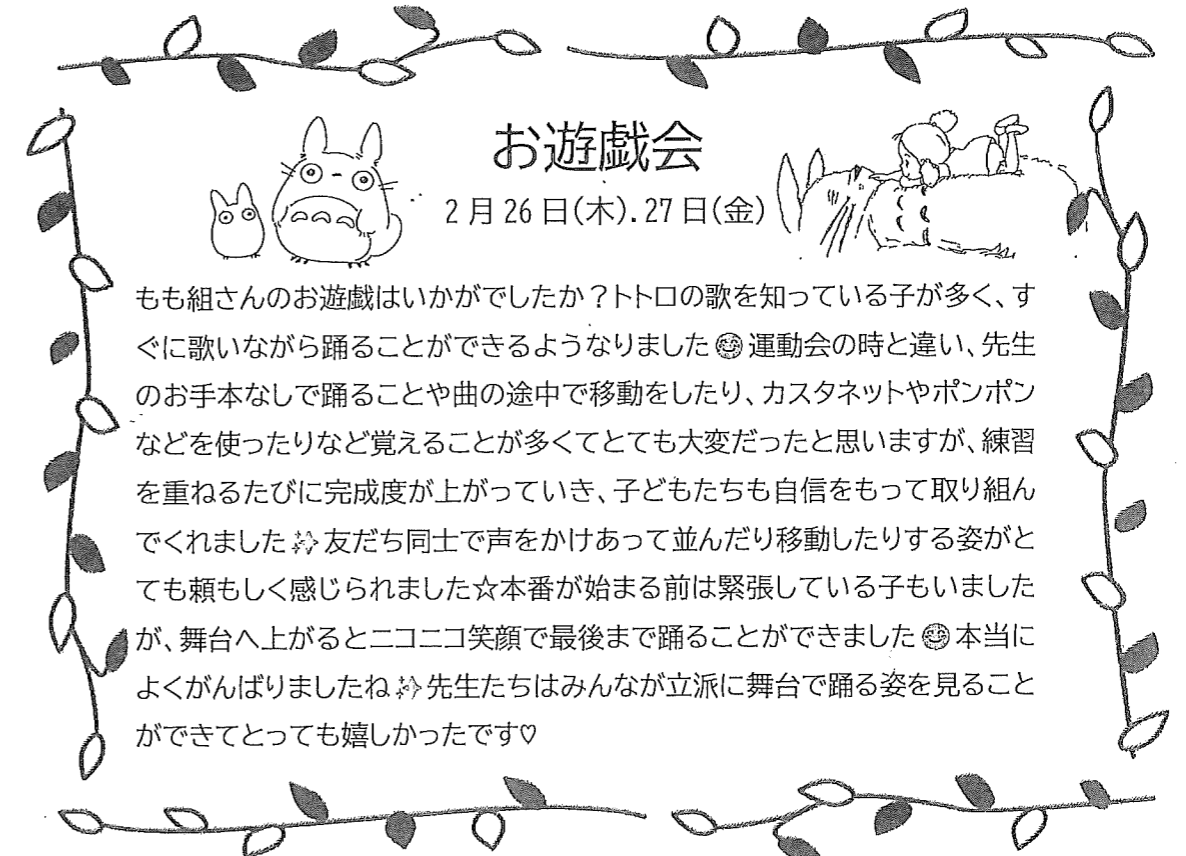 お遊戯会
2月26日(木).27日(金)
もも組さんのお遊戯はいかがでしたか？トトロの歌を知っている子が多く、す
ぐに歌いながら踊ることができるようなりました😊運動会の時と違い、先生
のお手本なしで踊ることや曲の途中で移動をしたり、カスタネットやポンポン
などを使ったりなど覚えることが多くてとても大変だったと思いますが、練習
を重ねるたびに完成度が上がっていき、子どもたちも自信をもって取り組ん
でくれました✨友だち同士で声をかけあって並んだり移動したりする姿がと
ても頼もしく感じられました☆本番が始まる前は緊張している子もいました
が、舞台へ上がるとニコニコ笑顔で最後まで踊ることができました😊本当に
よくがんばりましたね✨先生たちはみんなが立派に舞台で踊る姿を見ること
ができてとっても嬉しかったです♡